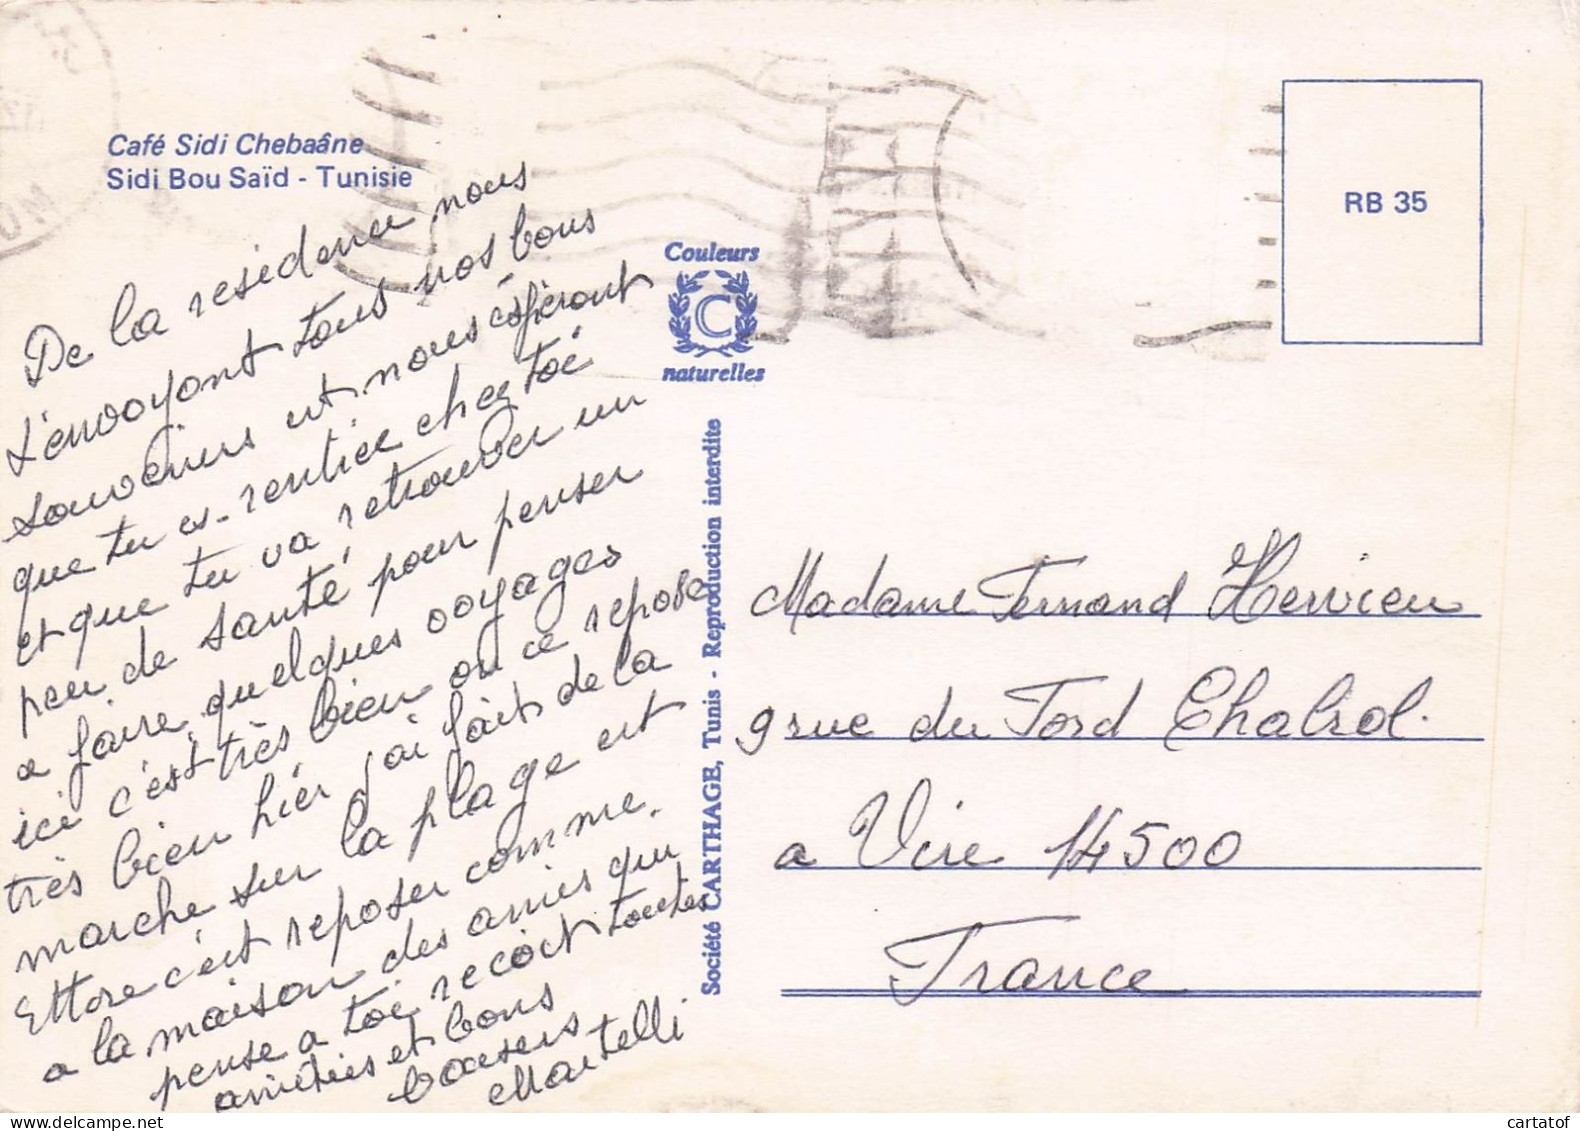 Café Sidi Chebaâne
Sidi Bou Saïd - Tunisie
De la residence nous
t'envoyont tous nos bons
souvenirs et nous éspéront
que tu es-rentier chez toi
et que tu va retrouver un
peu de santé, pour penser
a faire quelques voyages
ici c'est très bien on ce repose
très bien hier j'ai fait de la
marche sur la plage et
Ettore c'est reposer comme.
a la maison des amies qui
pense a toi recoit toutes
amitiés et bons
baisers
Martelli
Couleurs
C
naturelles
Société CARTHAGE, Tunis - Reproduction interdite
RB 35
Madame Fernand Hervieu
9 rue du Nord Chalrol.
a Vire 14500
France
cartatof